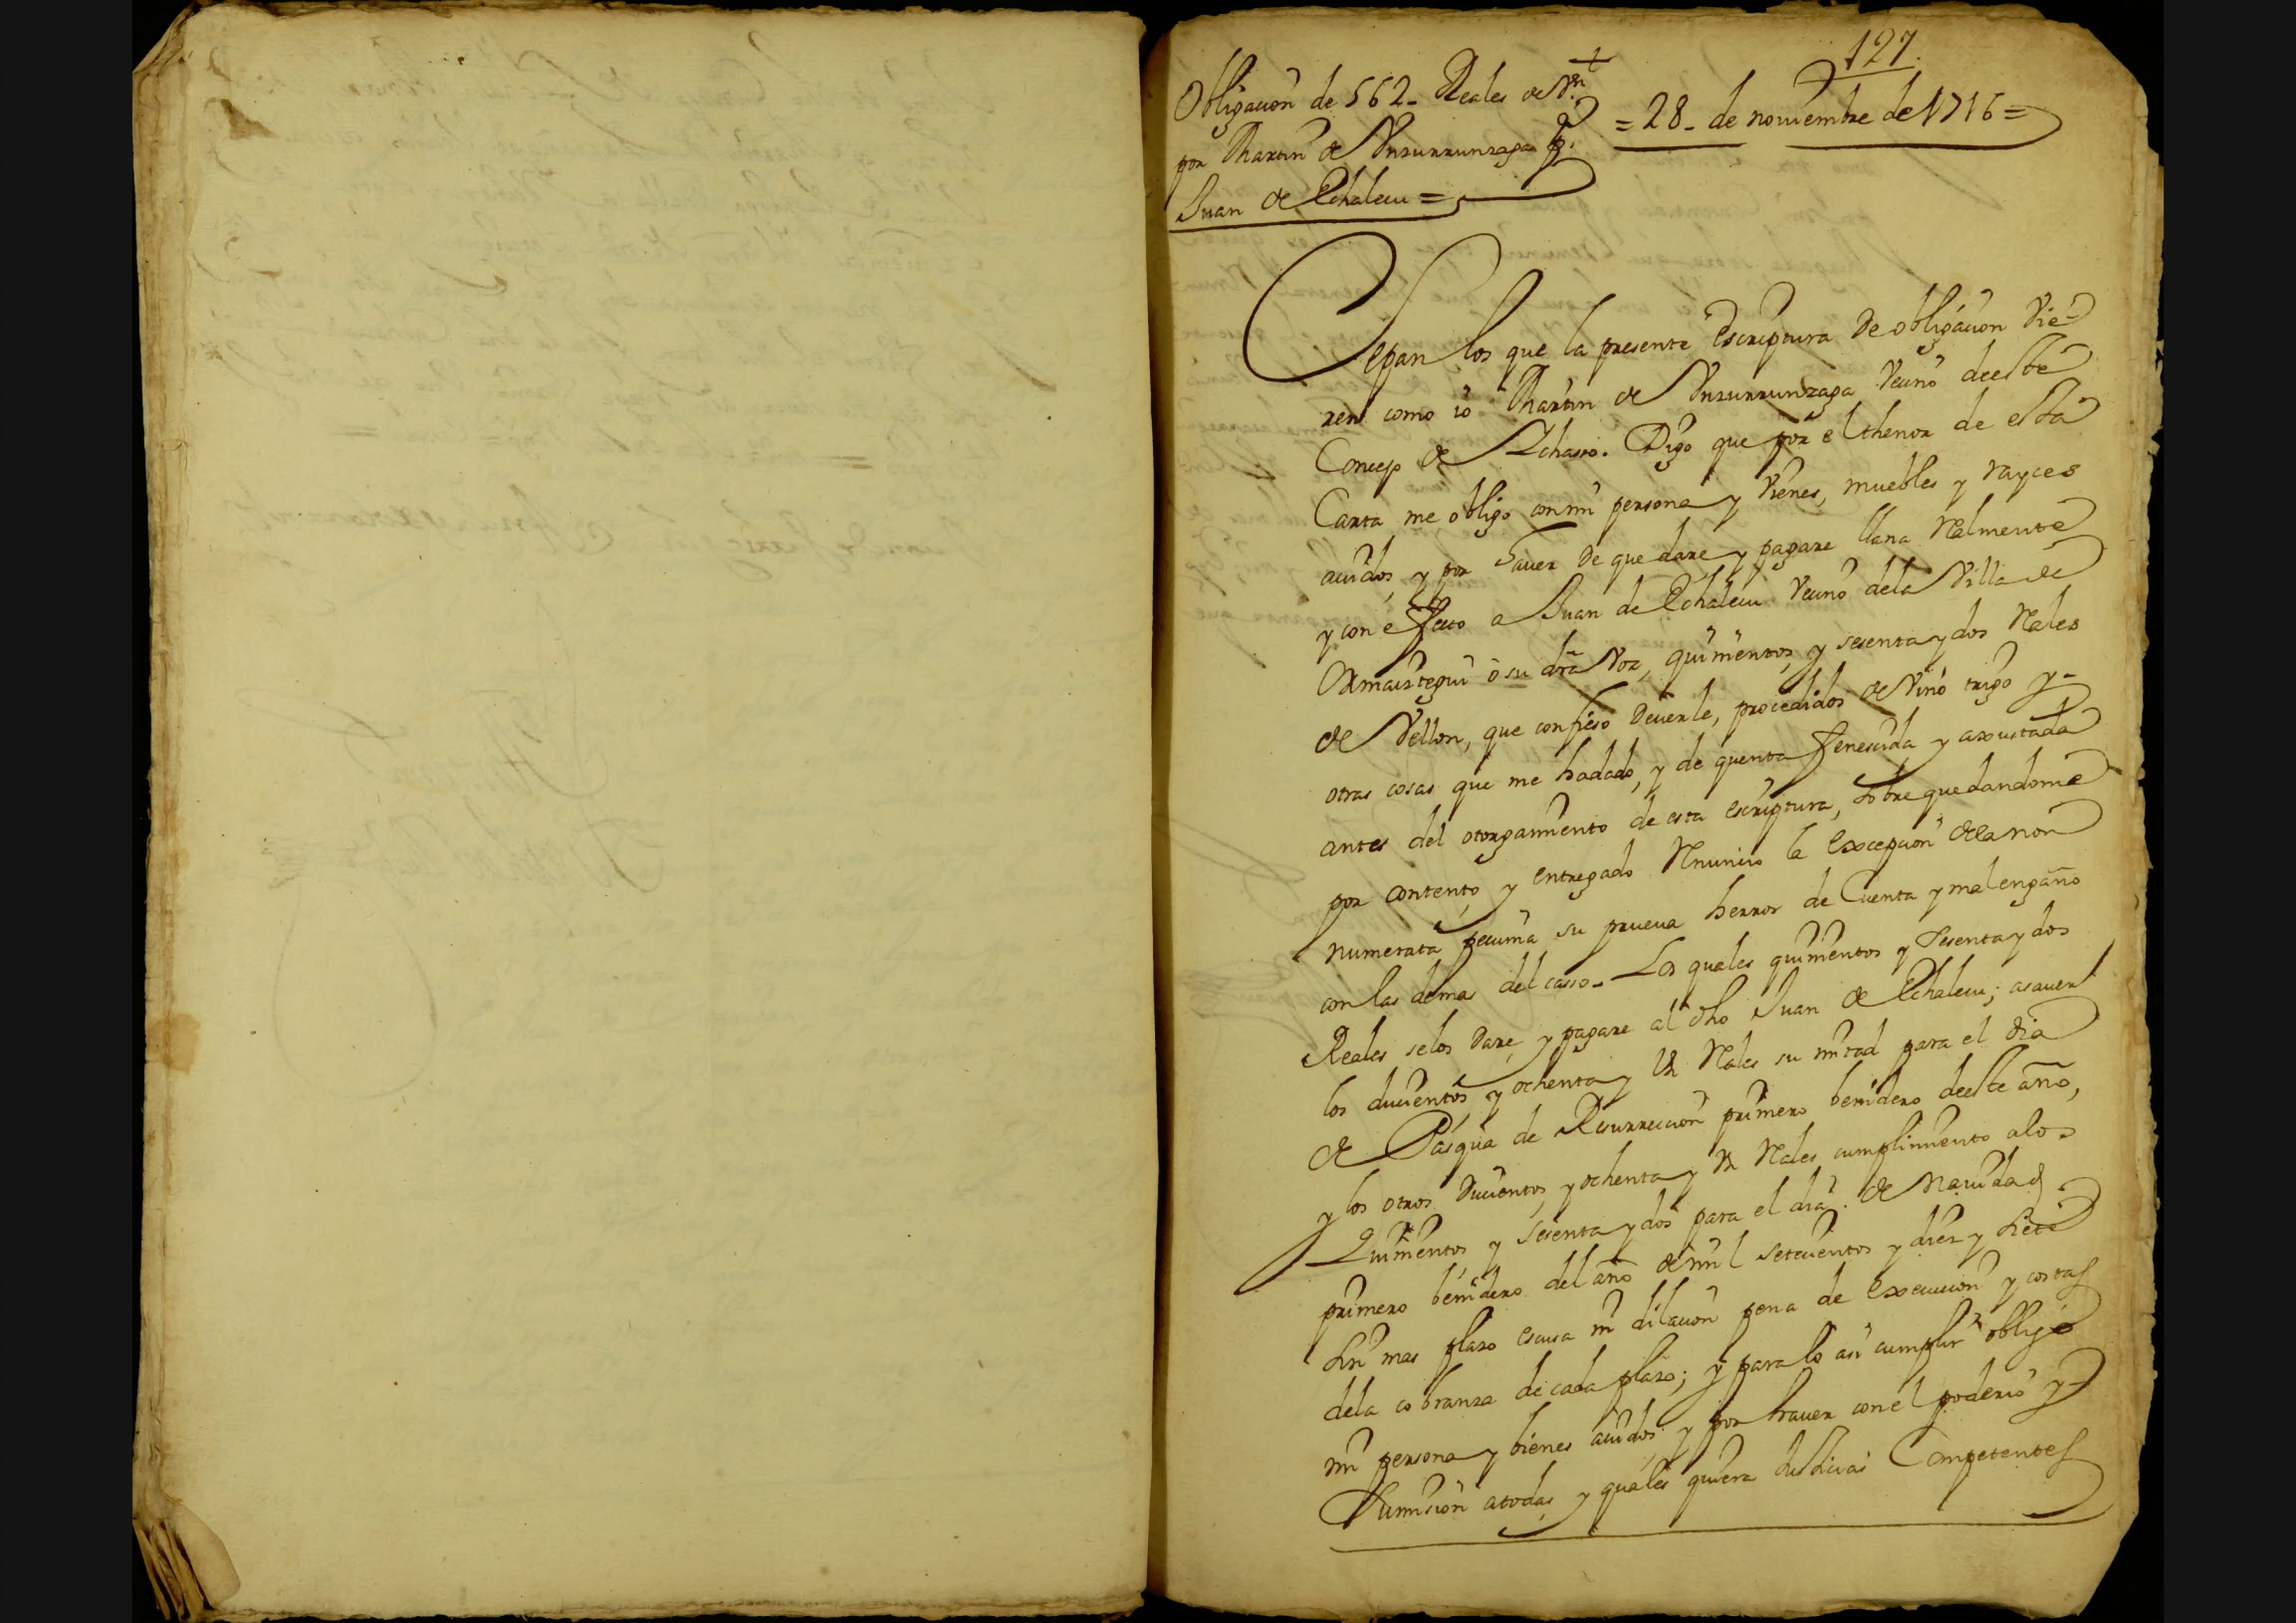 127.
Obligacion de 562- Reales de Vn
por Martin de Vnzurrunzaga pa.
Juan de Echalecu =
= 28- de nouiembre de 1716 =
Sepan los que la presente Escriptura de obligacion vie-
ren como io Martin de Vnzurrunzaga Vecino deeste
Concejo de Lcharro. Digo que por el thenor de esta
Carta me obligo con mi persona y vienes, muebles y rayces
auidos, y por hauer de que dare y pagare llana Realmente
y con effecto a Juan de Echalecu Vecino dela Villa de
Ormaiztegui o su dra Voz, quinientos, y sesenta y dos Reales
de Vellon, que confieso deuerle, procedidos de Vino trigo y-
otras cosas que me hadado, y de quenta fenescida, y axustada
antes del otorgamiento de esta escriptura, sobre quedandome
por contento, y entregado Renuncio la Excepcion dela non
numerata pecunia su prueua herror de Cuenta y mal engaño
con las demas del casso- Los quales quinientos y Sesenta y dos
Reales selos dare, y pagare al dho Juan de Echalecu; asauer
los ducientos, y ochenta y Vn Reales su mitad para el dia
de Pasqua de Resurreccion primero benidero deeste año,
y los otros Ducientos, y ochenta y Vn Reales cumplimiento alos
Quinientos, y Sesenta y dos para el dia de Nauidad
primero benidero del año de mil setecientos y diez y siete
sin mas plazo escusa ni dilacion pena de Execucion y costas
dela cobranza de cada plazo; y para lo asi cumplir obligo
mi persona y bienes auidos, y por hauer con el poderio y-
Sumision atodas, y quales quiera Justicias Competentes